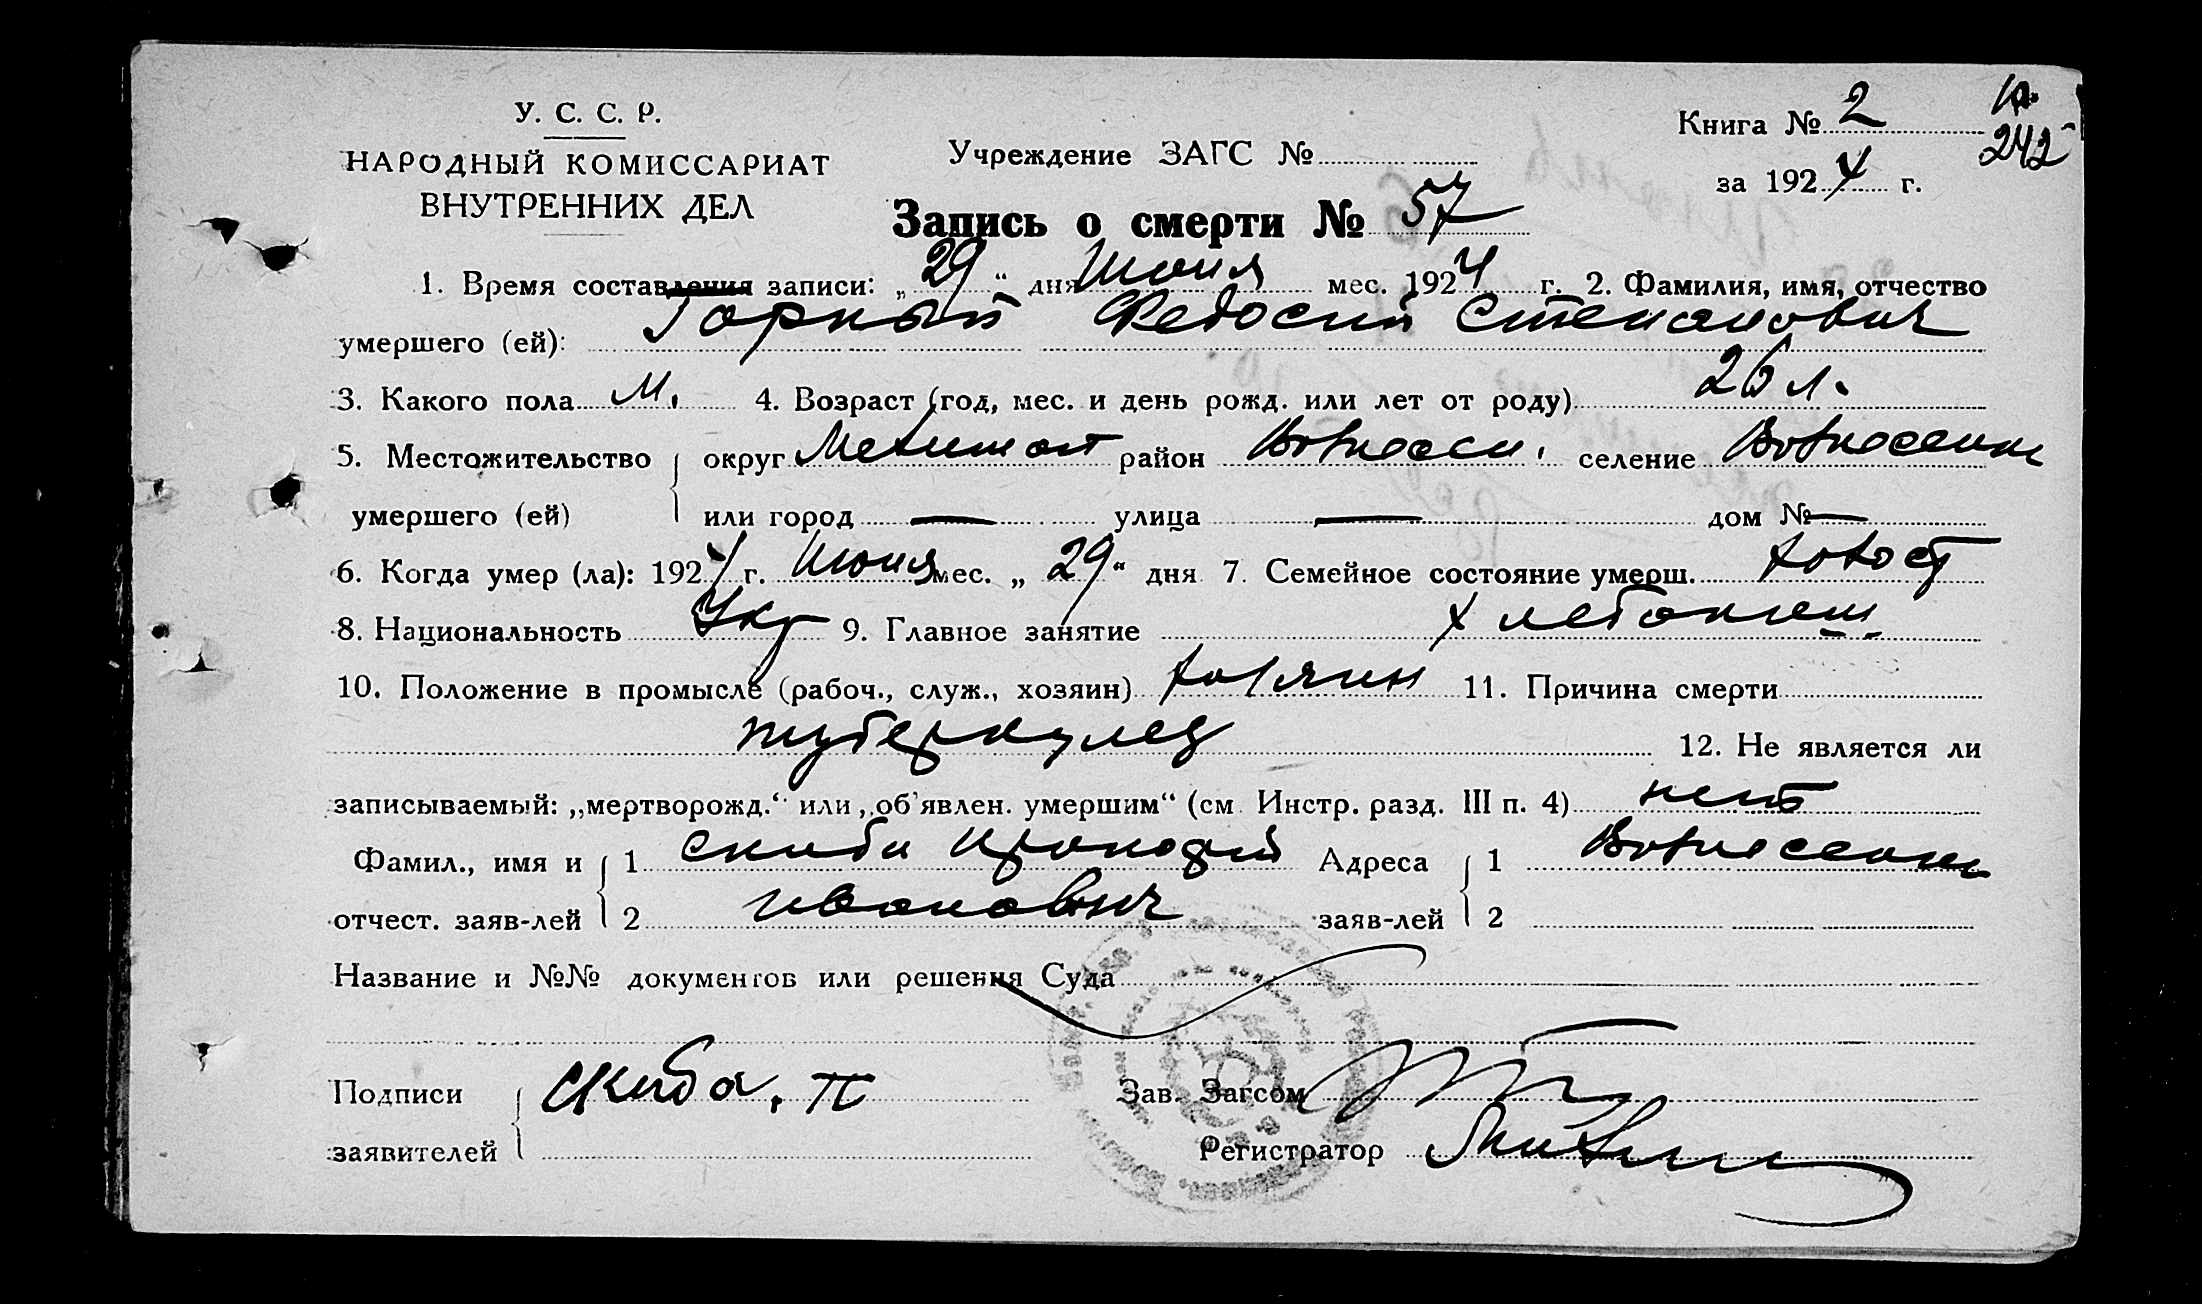 У. С. С. Р.
НАРОДНЫЙ КОМИССАРИАТ
ВНУТРЕННИХ ДЕЛ
Учреждение ЗАГС №
Книга № 2
242
за 1924 г.
Запись о смерти № 57
1. Время составления записи: „29“ дня Июня мес. 1924 г. 2. Фамилия, имя, отчество
умершего (ей): Горный Федосий Степанович
3. Какого пола м. 4. Возраст (год, мес. и день рожд. или лет от роду) 26 л.
5. Местожительство округ Мелитоп район Вознесен. селение Вознесенк
умершего (ей) или город — улица — дом № —
6. Когда умер (ла): 1924 г. Июня мес. „29“ дня 7. Семейное состояние умерш. холост
8. Национальность Укр 9. Главное занятие хлебопаш.
10. Положение в промысле (рабоч., служ., хозяин) хозяин 11. Причина смерти
туберкулез 12. Не является ли
записываемый: „мертворожд.“ или „об'явлен. умершим“ (см. Инстр. разд. III п. 4) нет
Фамил., имя и 1 Скиба Прокофий Адреса 1 Вознесенк
отчест. заяв-лей 2 Иванович заяв-лей 2
Название и №№ документов или решения Суда
Подписи Скиба. П Зав. Загсом
заявителей Регистратор